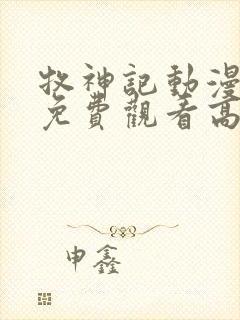 牧神記動漫
免費觀看高
申鑫